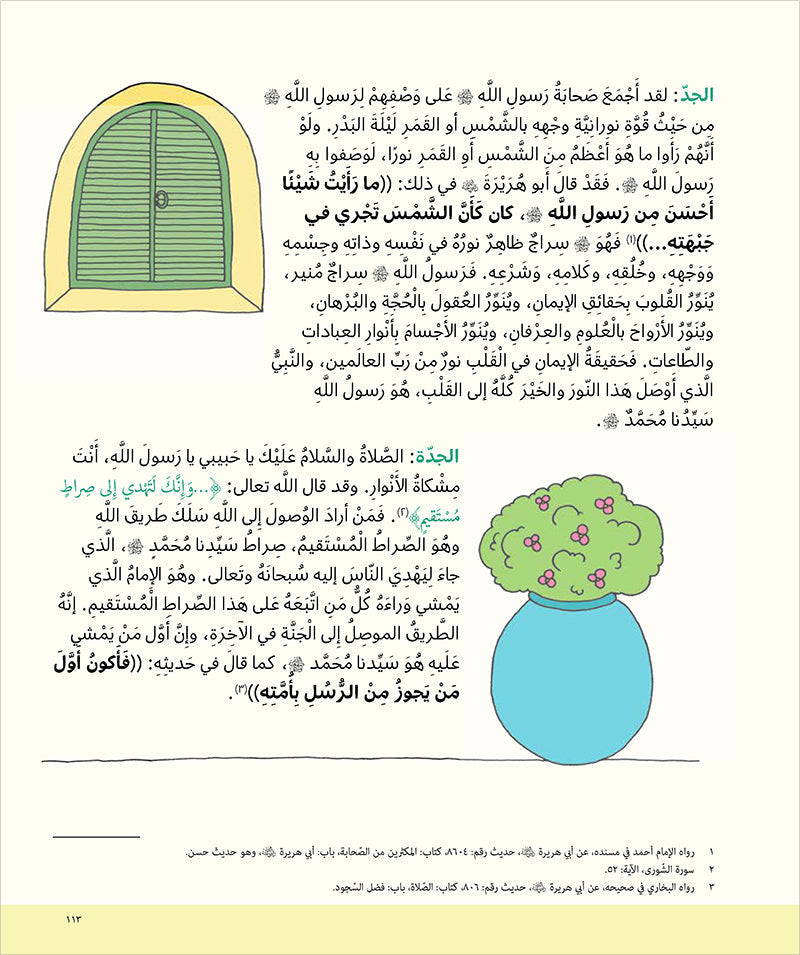 الجدّ: لقد أَجْمَعَ صَحابَةُ رَسولِ اللَّهِ ﷺ عَلى وَصْفِهِمْ لِرَسولِ اللَّهِ ﷺ
مِن حَيْثُ قُوَّةِ نورانِيَّةِ وجْهِهِ بالشَّمْسِ أو القَمَرِ لَيْلَةَ البَدْرِ. ولَوْ
أَنَّهُمْ رَأَوا ما هُوَ أَعْظَمُ مِنَ الشَّمْسِ أَوِ القَمَرِ نورًا، لَوَصَفوا بِهِ
رَسولَ اللَّهِ ﷺ. فَقَدْ قالَ أَبو هُرَيْرَةَ في ذلك: ((ما رَأَيْتُ شَيْئًا
أَحْسَنَ مِن رَسولِ اللَّهِ ﷺ، كان كَأَنَّ الشَّمْسَ تَجْري في
جَبْهَتِهِ...))(١) فَهُوَ ﷺ سِراجٌ ظاهِرٌ نورُهُ في نَفْسِهِ وذاتِهِ وجِسْمِهِ
وَوَجْهِهِ، وخُلُقِهِ، وكَلامِهِ، وَشَرْعِهِ. فَرَسولُ اللَّهِ ﷺ سِراجٌ مُنير،
يُنَوِّرُ القُلوبَ بِحَقائِقِ الإيمانِ، ويُنَوِّرُ العُقولَ بِالْحُجَّةِ والبُرْهانِ،
ويُنَوِّرُ الأَرْواحَ بالْعُلومِ والعِرْفانِ، ويُنَوِّرُ الأَجْسامَ بِأَنْوارِ العِباداتِ
والطّاعاتِ. فَحَقيقَةُ الإيمانِ في القَلْبِ نورٌ مِنْ رَبِّ العالَمين، والنَّبِيُّ
الَّذي أَوْصَلَ هَذا النّورَ والخَيْرَ كُلَّهُ إلى القَلْبِ، هُوَ رَسولُ اللَّهِ
سَيِّدُنا مُحَمَّدٌ ﷺ.
الجدّة: الصَّلاةُ والسَّلامُ عَلَيْكَ يا حَبيبي يا رَسولَ اللَّهِ، أَنْتَ
مِشْكاةُ الأَنْوارِ. وقد قال اللَّه تعالى: ﴿...وَإِنَّكَ لَتَهْدي إِلى صِراطٍ
مُسْتَقيمٍ﴾(٢). فَمَنْ أرادَ الوُصولَ إلى اللَّهِ سَلَكَ طَريقَ اللَّهِ
وهُوَ الصِّراطُ الْمُسْتَقيمُ، صِراطُ سَيِّدِنا مُحَمَّدٍ ﷺ، الَّذي
جاءَ لِيَهْدِيَ النّاسَ إليه سُبحانَهُ وتَعالى. وهُوَ الإمامُ الَّذي
يَمْشي وَراءَهُ كُلُّ مَنِ اتَّبَعَهُ عَلى هَذا الصِّراطِ الْمُسْتَقيمِ. إنَّهُ
الطَّريقُ الموصِلُ إلى الْجَنَّةِ في الآخِرَةِ، وإنَّ أوَّل مَنْ يَمْشي
عَلَيهِ هُوَ سَيِّدنا مُحَمَّد ﷺ، كما قالَ في حَديثِهِ: ((فَأَكونُ أَوَّلَ
مَنْ يَجوزُ مِنْ الرُّسُلِ بِأُمَّتِهِ))(٣).
١ رواه الإمام أحمد في مسنده، عن أبي هريرة، حديث رقم: ٨٦٠٤، كتاب: المكثرين من الصّحابة، باب: أبي هريرة، وهو حديث حسن.
٢ سورة الشّورى، الآية: ٥٢.
٣ رواه البخاري في صحيحه، عن أبي هريرة، حديث رقم: ٨٠٦، كتاب: الصّلاة، باب: فضل السّجود.
١١٣